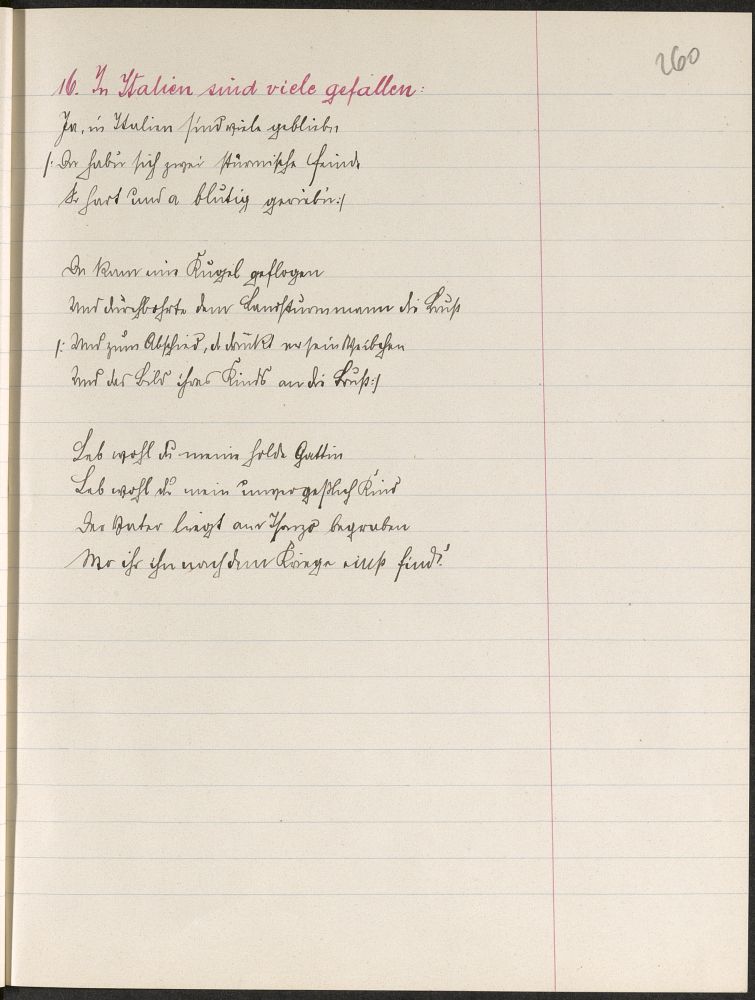 260
16. In Italien sind viele gefallen:
Ja, in Italien sind viele gebliebn
/: Da habn sich zwei stürmische Feinde
So hart und a blutig geriebn :/
Da kam eine Kugel geflogen
Und durchbohrte dem Landsturmmann die Brust
/: Und zum Abschied, da drückt er sein Weibchen
Und das Bild ihres Kinds an die Brust :/
Leb wohl du meine holde Gattin
Leb wohl du mein unvergeßlich Kind
Der Vater liegt am Isonzo begraben
Wo ihr ihn nach dem Kriege einst findt.